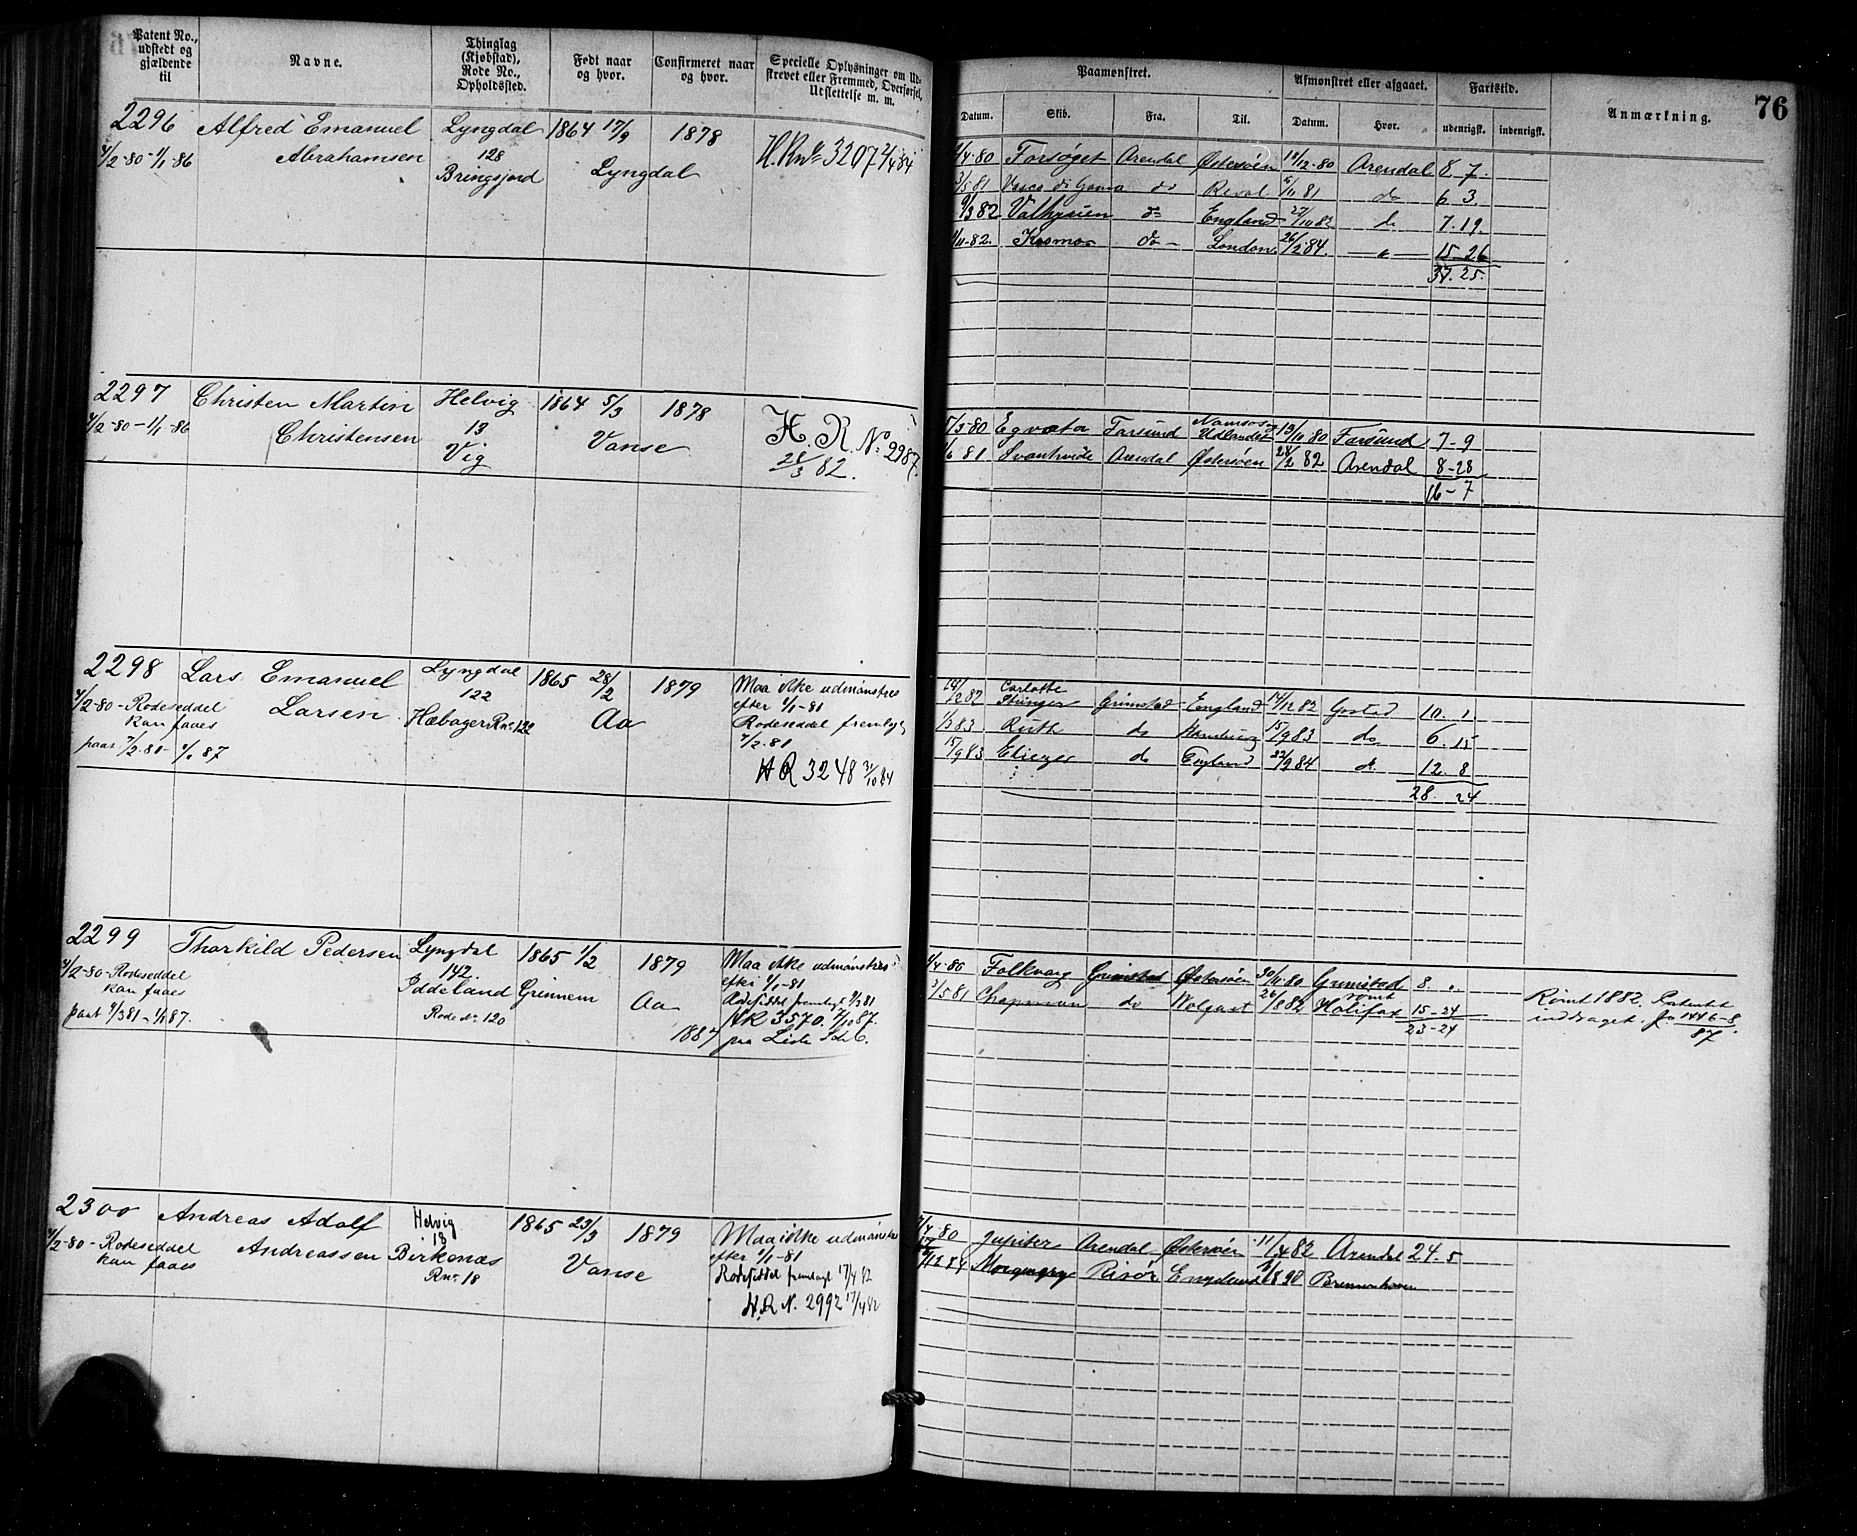 Patent No., udstedt og gjældende til
Navne.
Thinglag (Kjøbstad), Rode No., Opholdssted.
Født naar og hvor.
Confirmeret naar og hvor.
Specielle Oplysninger om Udskrevet eller Fremmed, Overførsel, Udslettelse m. m.
Paamønstret.
Afmønstret eller afgaaet.
Fartstid.
Anmærkning.
76
Datum.
Skib.
Fra.
Til.
Datum.
Hvor.
udenrigsk.
indenrigsk.
2296 Alfred Emanuel Lyngdal 1864 17/9 1878 H.R.No 3207 2/4 84
4/2-80-1/1-86 Abrahamsen 128
Bringsjord Lyngdal
4-80 Forsøget Arendal Østersøen 14/12-80 Arendal 8 7.
3/5 81 Vasco di Gama do Reval 81 do 6 3.
9/3 82 Valkyrien do England 27/10 82 do 7.19.
11-82. Kosmos do - London 26/2 84. 15-26
37.25.
2297 Christen Martin Helvig 1864 5/3 1878
4/2-80-1/1-86 Christensen 13 Vanse H. R. No 2987.
Vig 28/3 82.
3-80 Egvæta Farsund Namsos Udlandet 13/11 80 Farsund 7-9
6 81 Svanhvide Arendal Østersøen 28/2 82 Arendal 8-28
16-7
2298 Lars Emanuel Lyngdal 1865 28/12 1879 Maa ikke udmønstres
4/2-80-Rodeseddel Larsen 122 efter 1/1-81
kan faaes Hæbager Rno 122 Aa Rodeseddel fremlagt
paar 7/2-81- 87 7/2-81
H R 3248 31/10 84
2 82 Carlotte Grimstad England 14/12 82 Grstad 10. 1
3 83 Ruth do Hamburg 15/9 83 do 6. 15
15/9 83 Eliezer do England 22/9 84 do 12. 8
28. 24
2299 Thorkild Pedersen Lyngdal 1865 1/2 1879 Maa ikke udmønstres
4/2-80-Rodeseddel 142. efter 1/1-81
kan faaes Iddeland Grinnem Aa Rodeseddel fremlagt 81
87. Rode No 120 HR 3570. 87.
1887 paa Liste
4-80 Folkvang Grimstad Østersøen 30/11-80 Grimstad 8. "
3/5 81 Chapman do Wolgast 26/8 82 rømt Halifax 15-24
23-24
Rømt 1882. Patentet
inddraget. fr 1446-8/87.
2300 Andreas Adolf Helvig 1865 23/3 1879 Maa ikke udmønstres
4/2-80-Rodeseddel Andreassen 18 efter 1/1-81
kan faaes Birkenæs Vanse Rodeseddel fremlagt 17/4 82
Rno 18 H.R N. 2992 17/4 82
4-80 Jupiter Arendal Østersøen 11/4 82 Arendal 24.5
12 84 Morgengry Risør England 90 Bremerhaven